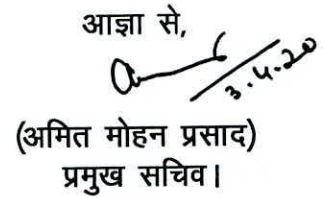 आज्ञा से,
3.4.20
(अमित मोहन प्रसाद)
प्रमुख सचिव।